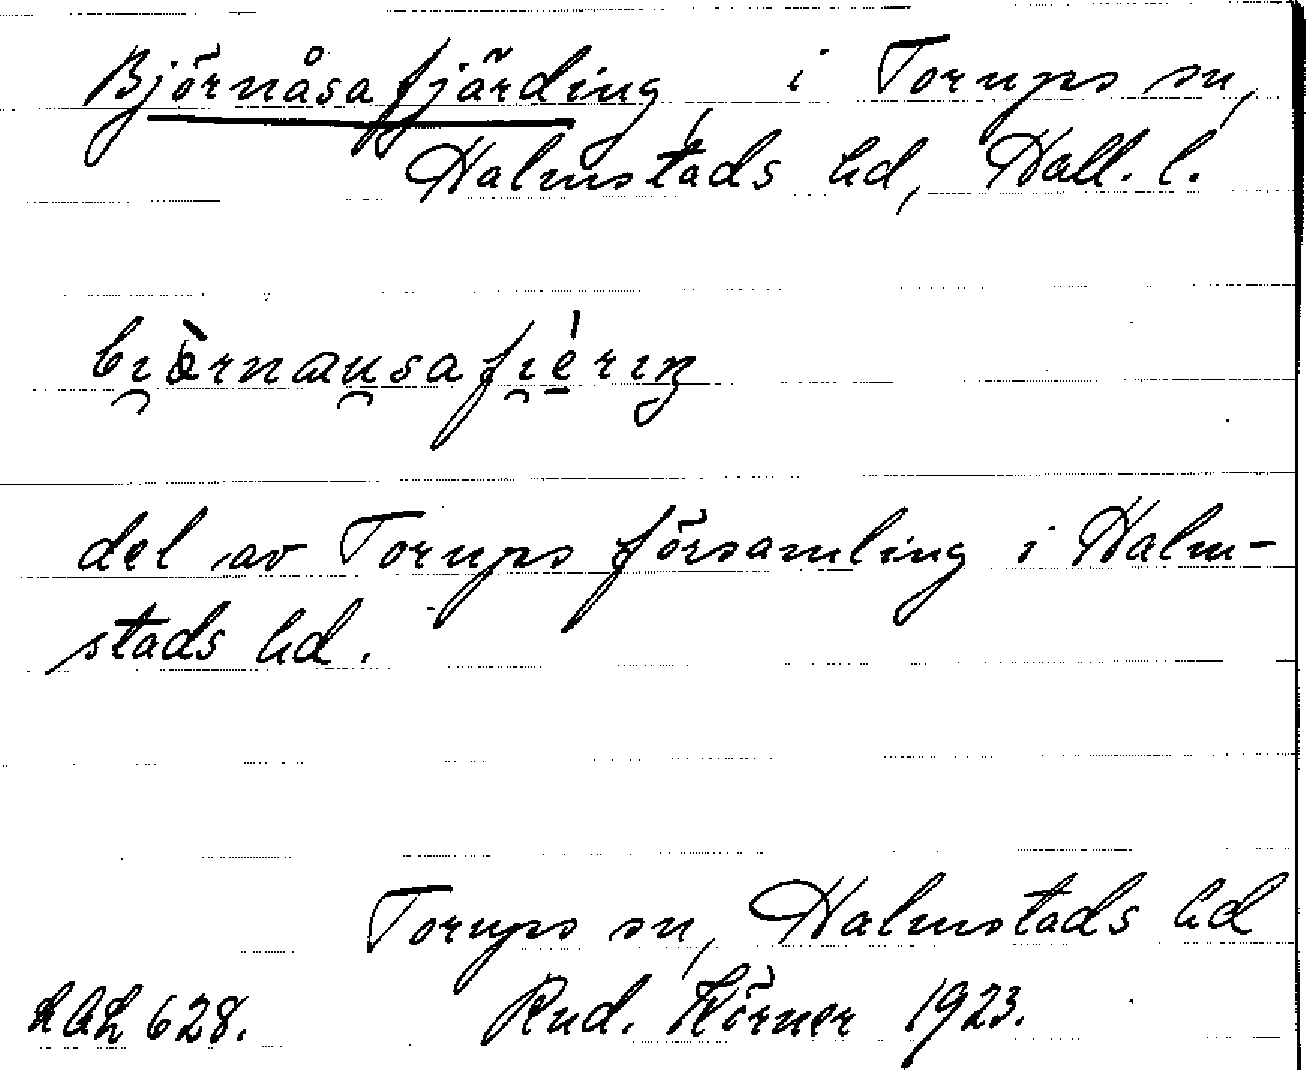 Björnåsa fjärding, i Torups sn,
Halmstads hd, Hall. l.
bi̯ö̀rnau̯safi̯é̠rıŋ
del av Torups församling i Halm-
stads hd.
Torups sn, Halmstads hd
LAL 628. Rud. Körner 1923.